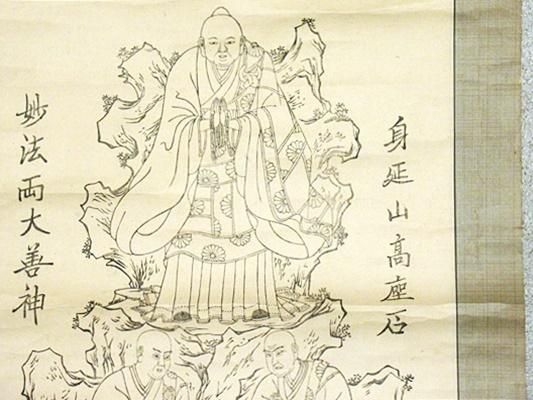 身延山高座石
妙法両大善神